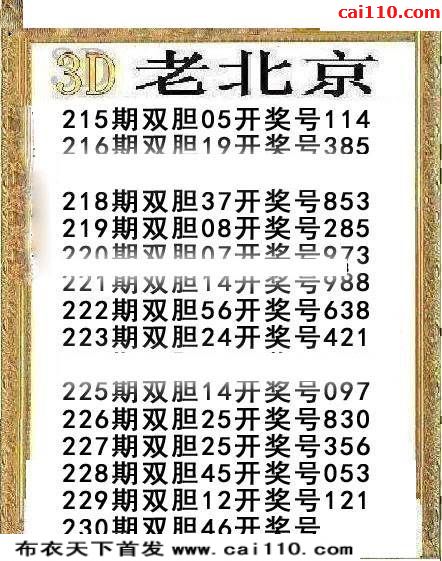 cai110.com
3D 老北京
215期双胆05开奖号114
216期双胆19开奖号385
218期双胆37开奖号853
219期双胆08开奖号285
220期双胆07开奖号973
221期双胆14开奖号988
222期双胆56开奖号638
223期双胆24开奖号421
225期双胆14开奖号097
226期双胆25开奖号830
227期双胆25开奖号356
228期双胆45开奖号053
229期双胆12开奖号121
230期双胆46开奖号
布衣天下首发 www.cai110.com